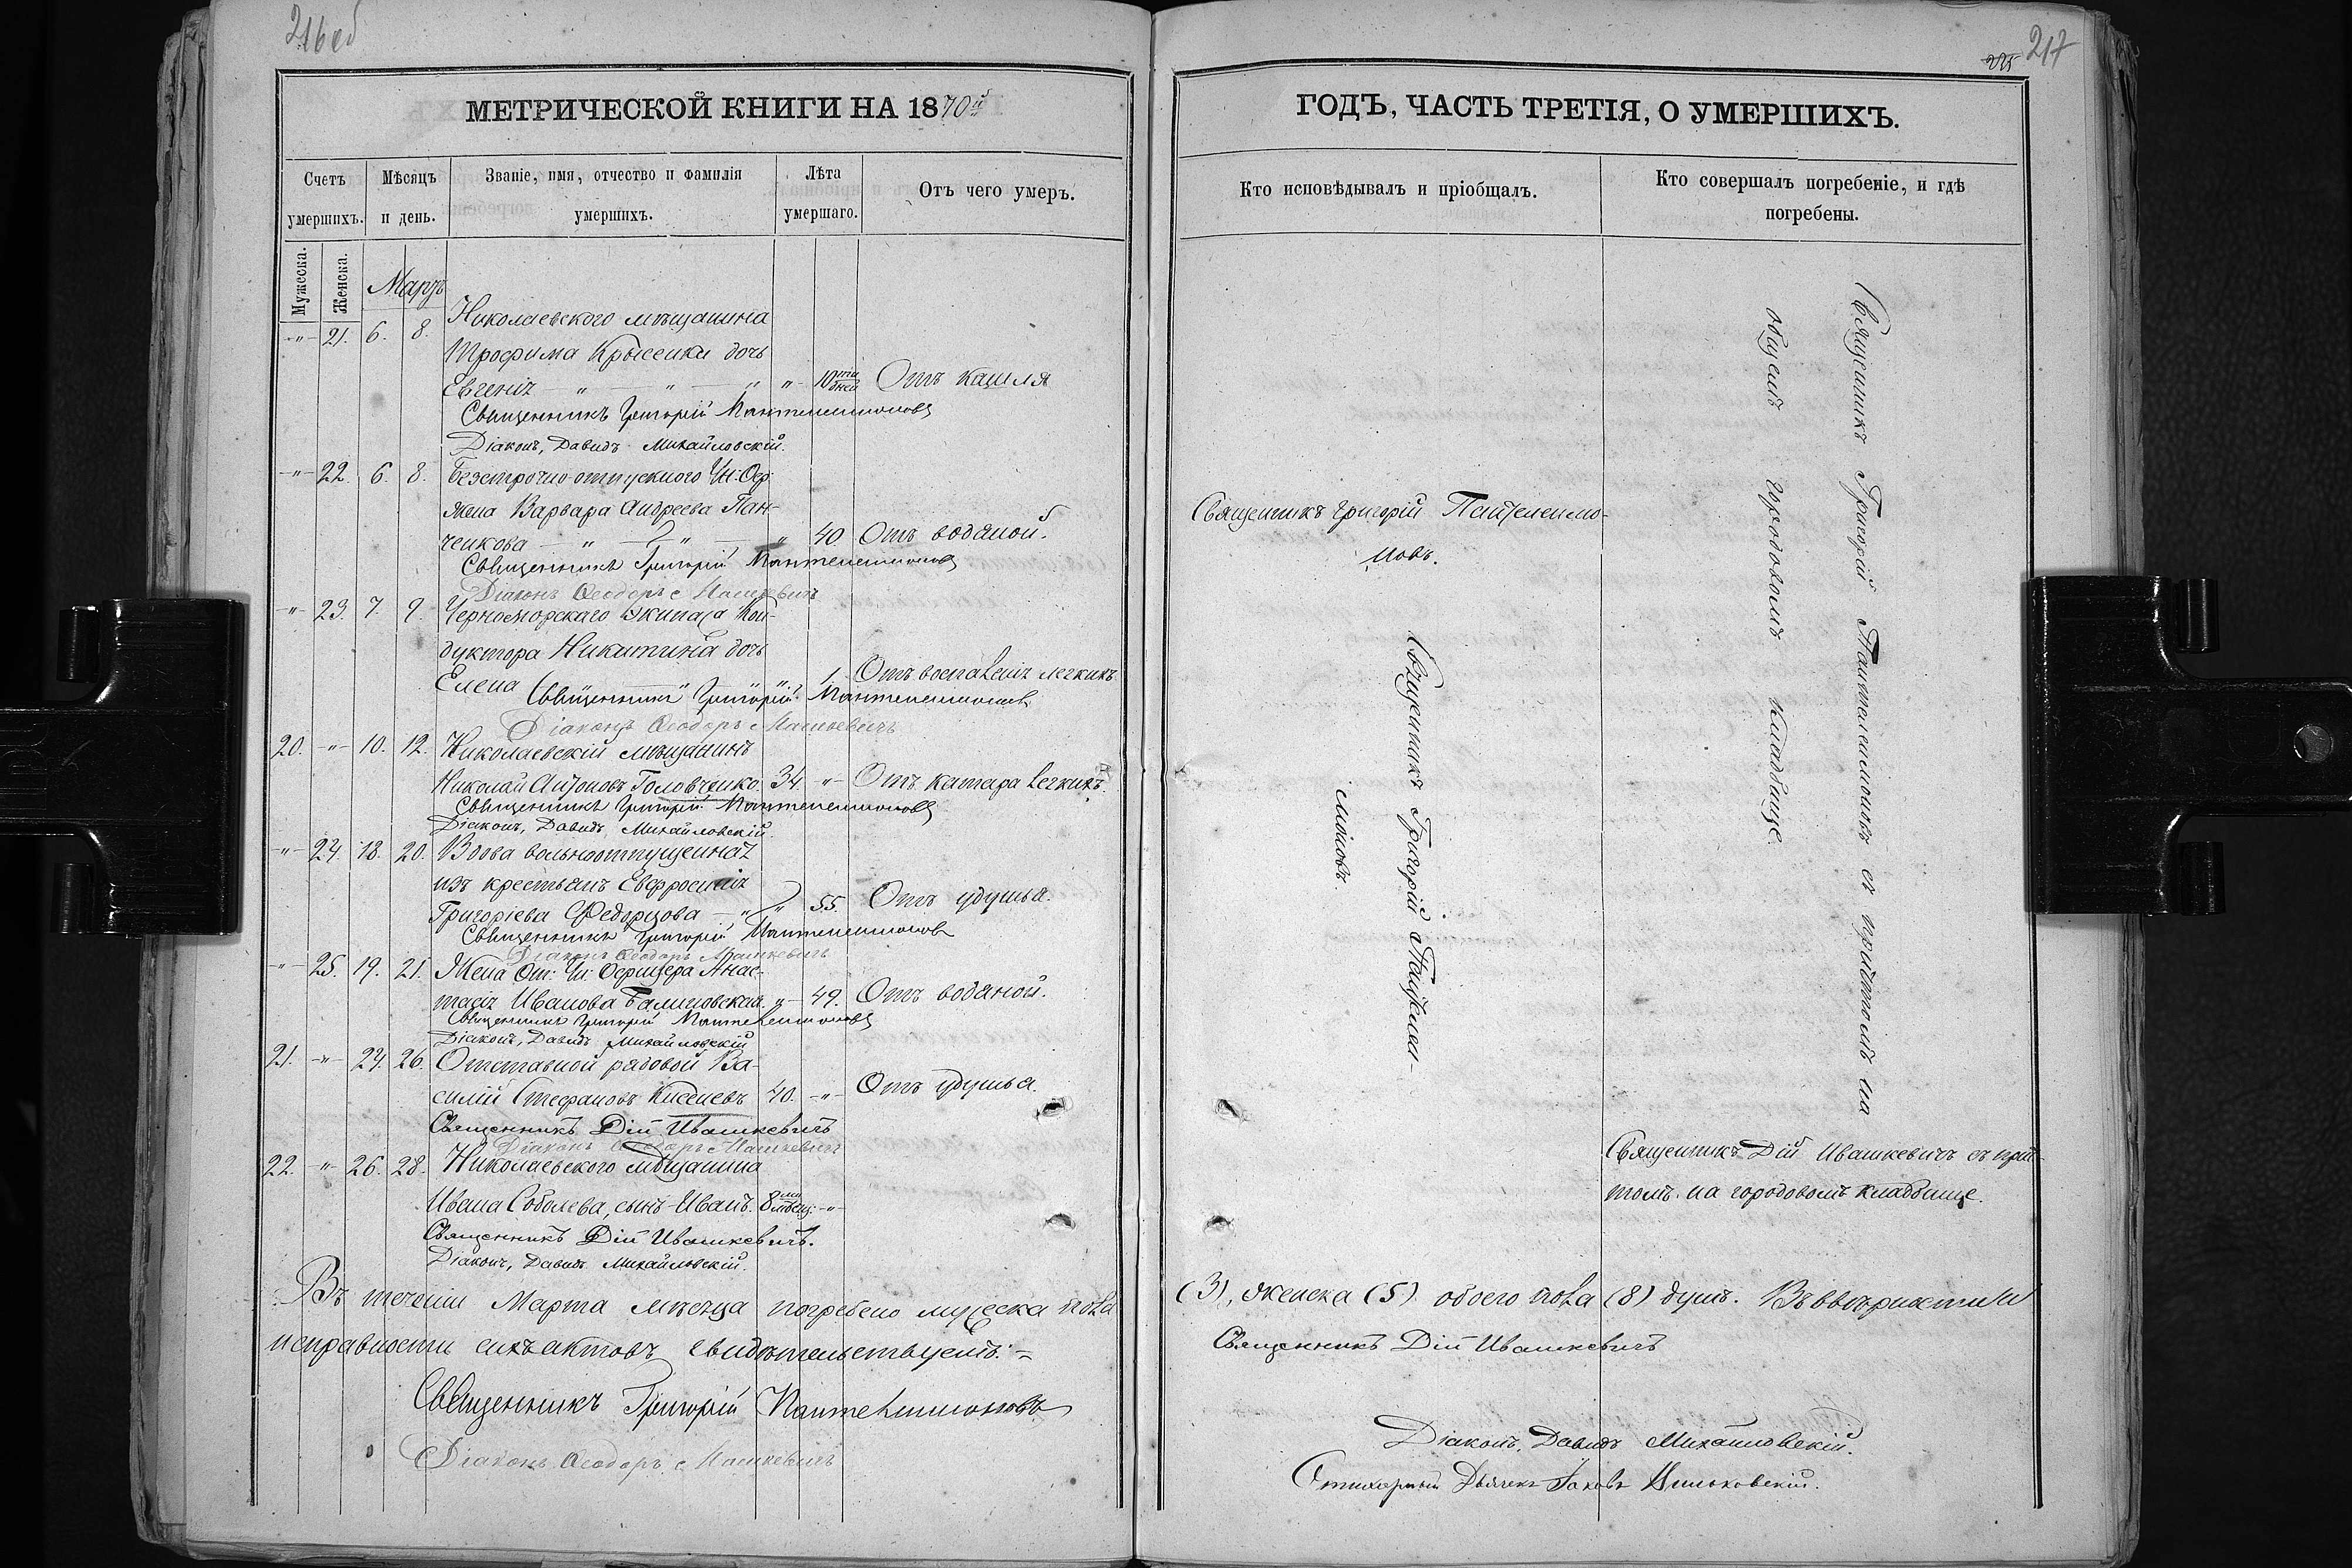 216 об
МЕТРИЧЕСКОЙ КНИГИ НА 1870й
Счетъ умершихъ.
Мѣсяцъ и день.
Званіе, имя, отчество и фамилія умершихъ.
Лѣта умершаго.
Отъ чего умеръ.
Мужеска.
Женска.
Мартъ
Николаевского мѣщанина
-"- 21. 6. 8.
Трофима Крысенки дочь
Евгенія — " — " — " " 10ти дней Отъ кашля
Священникъ Григорій Пантелеимоновъ
Діаконъ, Давидъ Михайловскій.
-"- 22. 6. 8. Безсрочно-отпускного Ун: Оф:
жена Варвара Андреева Пан-
ченкова — " — " — " 40 Отъ водяной.
Священникъ Григорій Пантелеимоновъ
Діаконъ Ѳеодоръ Машкевичъ
-"- 23. 7. 9. Черноморскаго Экипажа Кон-
дуктора Никитина дочь
Елена " " 1. Отъ воспаленія легкихъ
Священникъ Григорій Пантелеимоновъ
Діаконъ Ѳеодоръ Машкевичъ
20. -"- 10. 12. Николаевскій мѣщанинъ
Николай Антоновъ Головченко. 34. -"- Отъ катара легкихъ.
Священникъ Григорій Пантелеимоновъ
Діаконъ, Давидъ Михайловскій.
-"- 24. 18. 20. Вдова вольноотпущенная
изъ крестьянъ Евфросинія
Григоріева Федорцова — " " 55. Отъ удушья.
Священникъ Григорій Пантелеимоновъ
Діаконъ Ѳеодоръ Машкевичъ
-"- 25. 19. 21. Жена От: Ун: Офицера Анас-
тасія Иванова Балиновская. -"- 49. Отъ водяной.
Священникъ Григорій Пантелеимоновъ
Діаконъ, Давидъ Михайловскій
21. -"- 24. 26. Отставной рядовой Ва-
силій Стефановъ 40. -"- Отъ удушья.
Священникъ Дій Ивашкевичъ
Діаконъ Ѳеодоръ Машкевичъ
22. -"- 26. 28. Николаевского мѣщанина
Ивана Соболева, сынъ Иванъ. 8ми мѣсяц. -"-
Священникъ Дій Ивашкевичъ.
Діаконъ, Давидъ Михайловскій.
Въ теченіи Марта мѣсяца погребено мужеска пола
исправности сихъ актовъ свидѣтельствуемъ: -
Священникъ Григорій Пантелеимоновъ
Діаконъ Ѳеодоръ Машкевичъ
217
ГОДЪ, ЧАСТЬ ТРЕТІЯ, О УМЕРШИХЪ.
Кто исповѣдывалъ и пріобщалъ.
Кто совершалъ погребеніе, и гдѣ погребены.
Священникъ Григорій Пантелеимо-
новъ.
Священникъ Григорій Пантелеи-
моновъ.
Священникъ Григорій Пантелеимоновъ съ причтомъ на
общемъ городскомъ кладбище.
Священникъ Дій Ивашкевичъ съ прич-
томъ на городовомъ кладбище.
(3), женска (5) обоего пола (8) душъ. Въ вѣрности и
Священникъ Дій Ивашкевичъ
Діаконъ, Давидъ Михайловскій.
Стихарный Дьячекъ Іаковъ